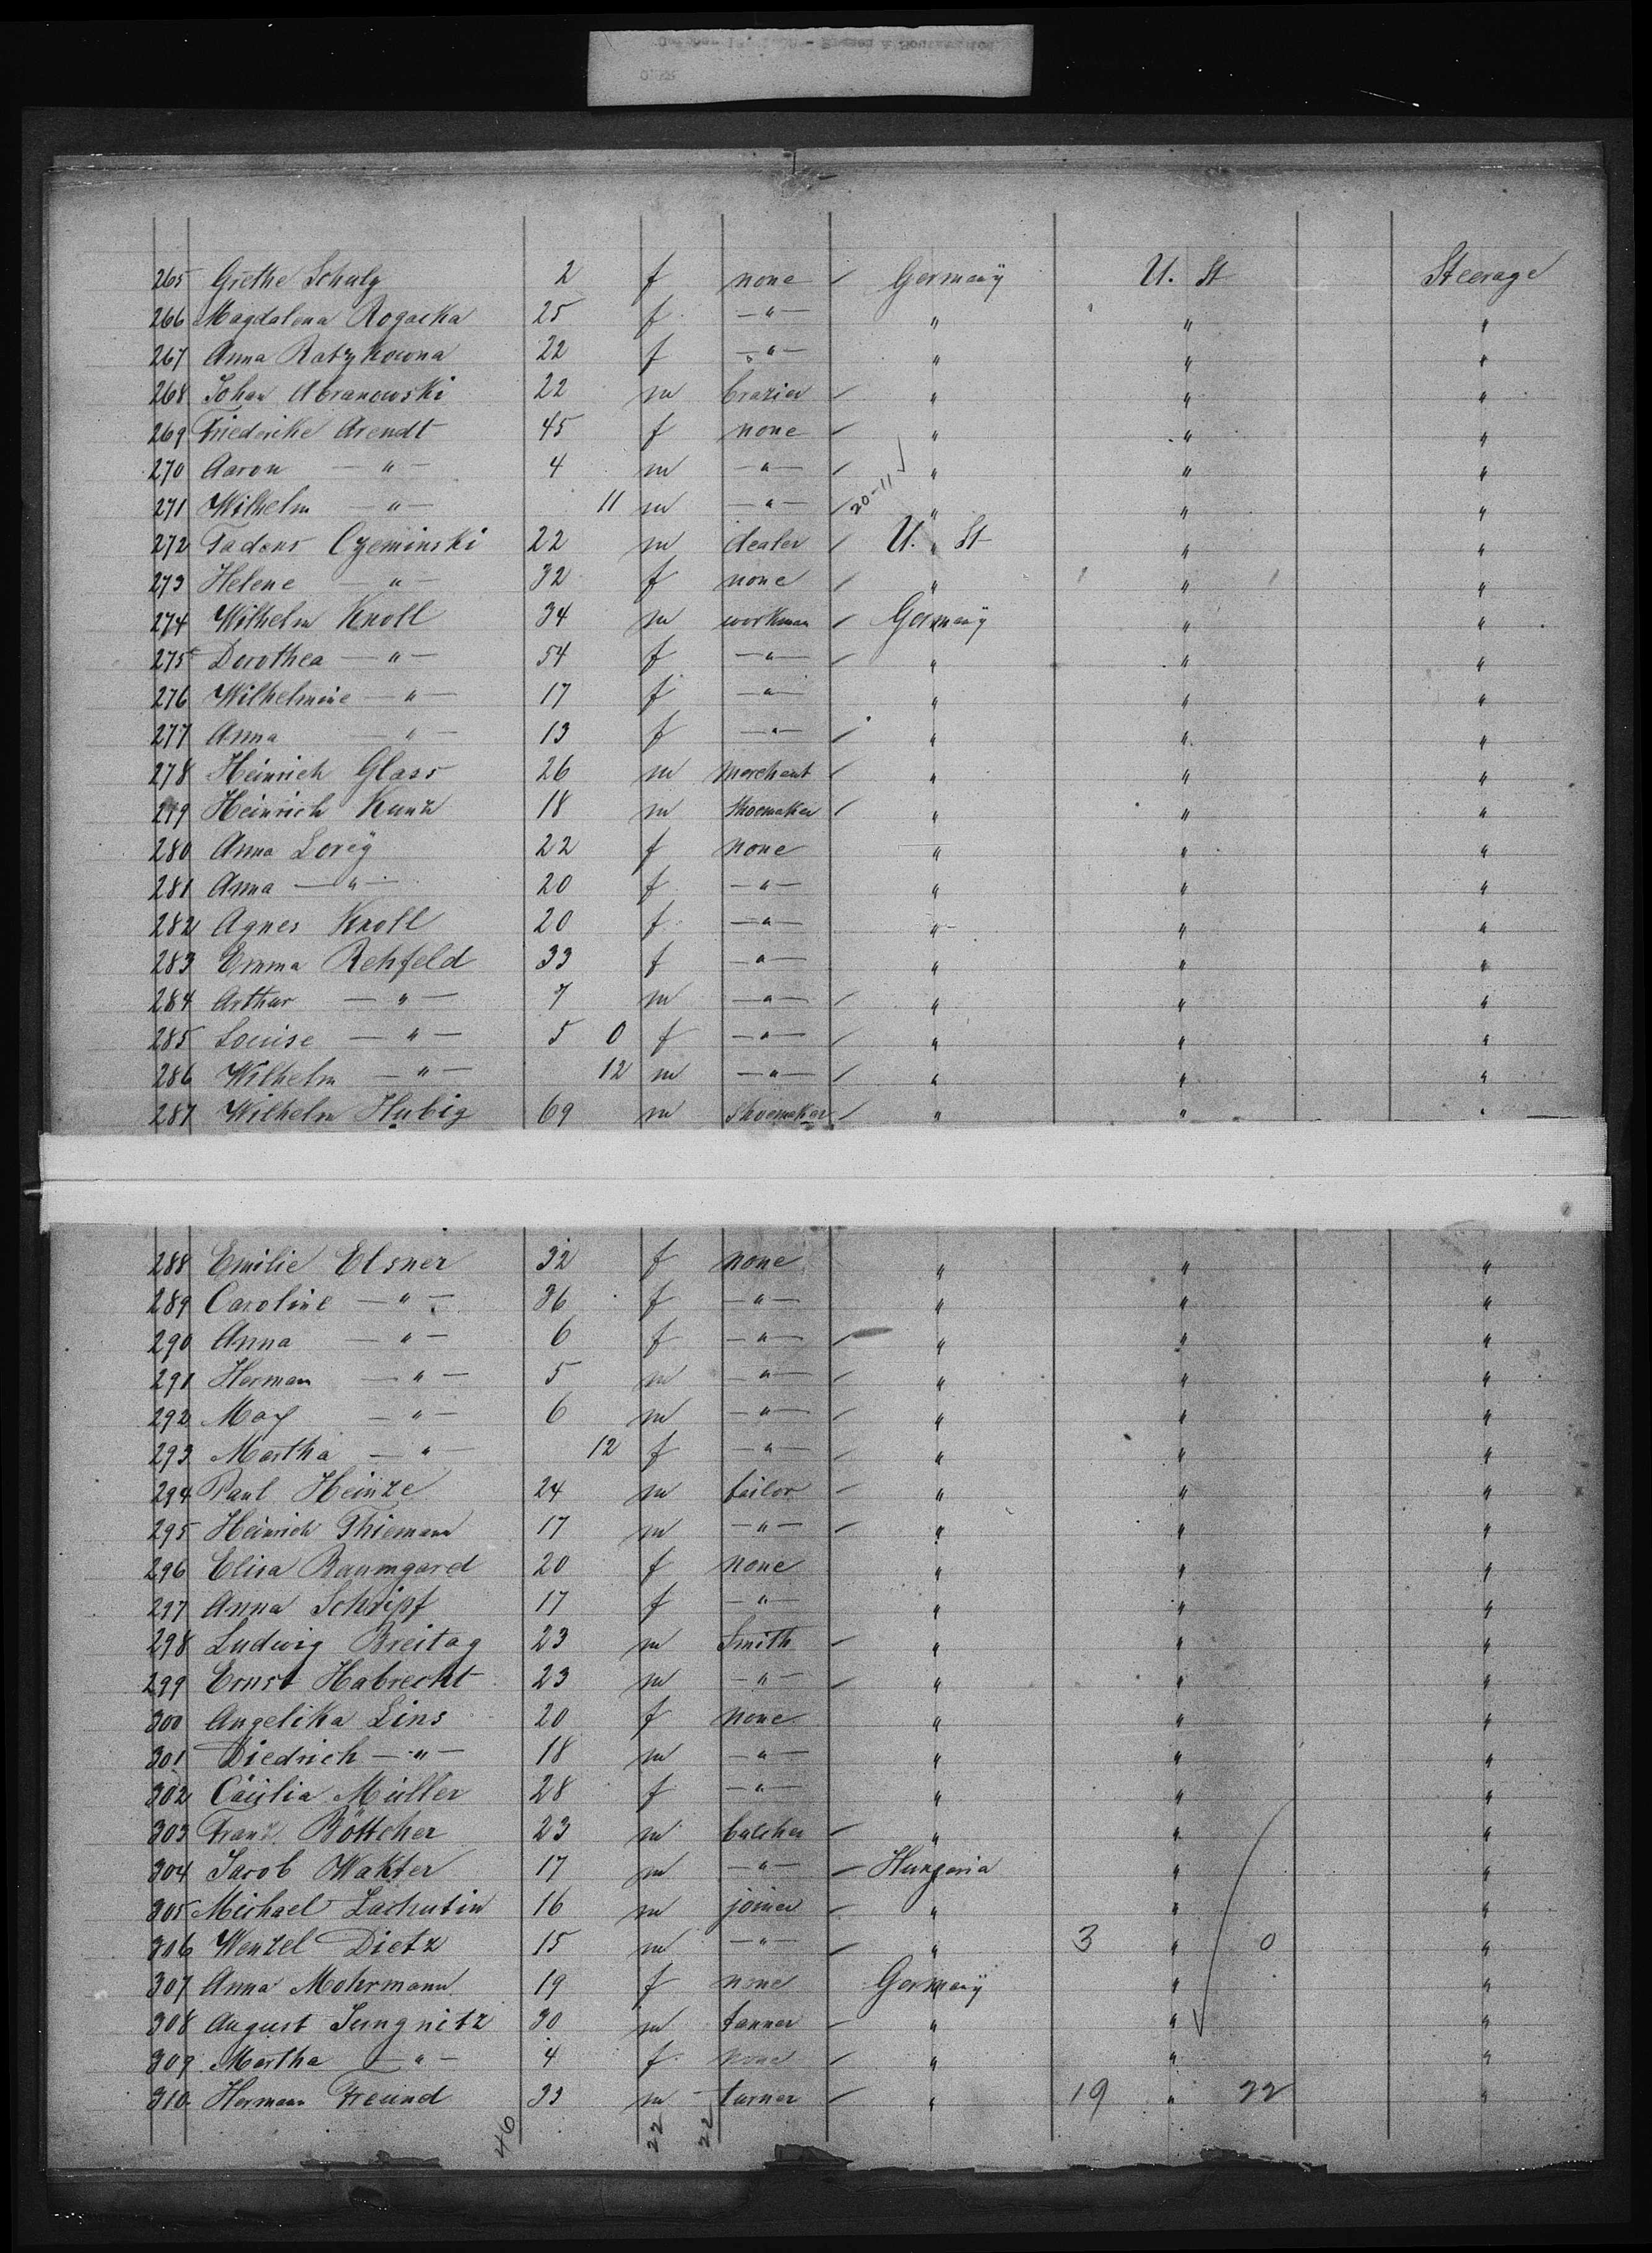 265 Grethe Schulz 2 f none Germany U. St Steerage
266 Magdalena Rogacka 25 f —"— " " "
267 Anna Ratzkowna 22 f —"— " " "
268 Johan Abranowski 22 m brazier " " "
269 Friederike Arendt 45 f none " " "
270 Aaron —"— 4 m —"— " " "
271 Wilhelm —"— 11 m —"— 20-11 " " "
272 Czeminski 22 m dealer U. St " "
273 Helene —"— 32 f none " " "
274 Wilhelm Knoll 34 m workman Germany " "
275 Dorothea —"— 54 f —"— " " "
276 Wilhelmine —"— 17 f —"— " " "
277 Anna —"— 13 f —"— " " "
278 Heinrich Glass 26 m merchant " " "
279 Heinrich Kunz 18 m shoemaker " " "
280 Anna Loreÿ 22 f none " " "
281 Anna —"— 20 f —"— " " "
282 Agnes Knoll 20 f —"— " " "
283 Emma Rehfeld 33 f —"— " " "
284 Arthur —"— 7 m —"— " " "
285 Louise —"— 5 0 f —"— " " "
286 Wilhelm —"— 12 m —"— " " "
287 Wilhelm Hubig 69 m shoemaker " " "
288 Emilie Elsner 32 f none " " "
289 Caroline —"— 36 f —"— " " "
290 Anna —"— 6 f —"— " " "
291 Herman —"— 5 m —"— " " "
292 Max —"— 6 m —"— " " "
293 Martha —"— 12 f —"— " " "
294 Paul Heinze 24 m tailor " " "
295 Heinrich Thiemann 17 m —"— " " "
296 Elisa Baumgard 20 f none " " "
297 Anna Schöipf 17 f —"— " " "
298 Ludwig Breitag 23 m Smith " " "
299 Ernst Habrecht 23 m —"— " " "
300 Angelika Lins 20 f none " " "
301 Diedrich —"— 18 m —"— " " "
302 Cäcilia Müller 28 f —"— " " "
303 Franz Böttcher 23 m butcher " " "
304 Jacob Wakter 17 m —"— Hungaria " "
305 Michael Lachutin 16 m joiner " " "
306 Wenzel Dietz 15 m —"— " 3 " 0 "
307 Anna Mohrmann 19 f none Germany " "
308 August Jungnitz 30 m tanner " " "
309 Martha —"— 4 f none " " "
310 Herman Freund 33 m turner " 19 " 22 "
46 22 22